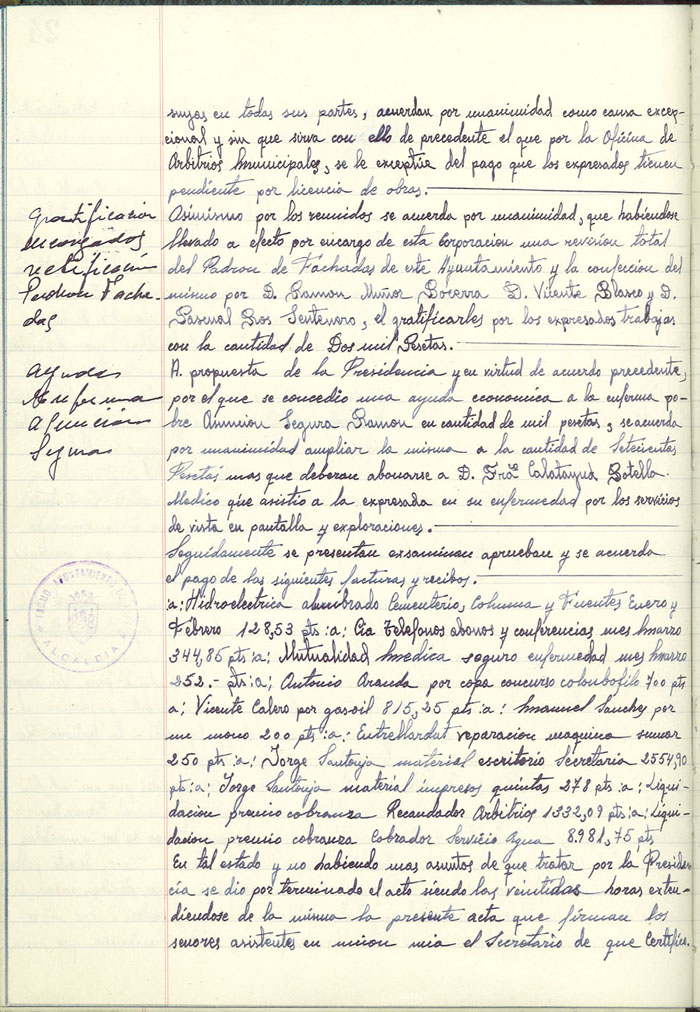 suyas en todas sus partes, acuerdan por unanimidad como causa excep-
cional y sin que sirva con ello de precedente el que por la Oficina de
Arbitrios Municipales, se le exceptúe del pago que los expresados tienen
pendiente por licencia de obras.
Gratificacion
encargados
rectificación
Padron Facha-
das
Asimismo por los reunidos se acuerda por unanimidad, que habiendose
llevado a efecto por encargo de esta Corporacion una revision total
del Padron de Fachadas de este Ayuntamiento y la confeccion del
mismo por D. Ramon Muñoz Bocerra D. Vicente Blasco y D.
Pascual Ros Sentenero, el gratificarles por los expresados trabajos
con la cantidad de Dos mil Pesetas.
Ayudas
enferma
Asuncion
Segura
A. propuesta de la Presidencia y en virtud de acuerdo precedente,
por el que se concedio una ayuda economica a la enferma po-
bre Asuncion Segura Ramon en cantidad de mil pesetas, se acuerda
por unanimidad ampliar la misma a la cantidad de Setecientas
Pesetas mas que deberan abonarse a D. Frco Calatayud Botella
Medico que asistio a la expresada en su enfermedad por los servicios
de vista en pantalla y exploraciones.
Seguidamente se presentan exsaminan aprueban y se acuerda
el pago de las siguientes facturas y recibos.
:a: Hidroelectrica alumbrado Cementerio, Columna y Fuentes Enero y
Febrero 128,53 pts :a: Cia Telefonos abonos y conferencias mes Marzo
344,85 pts :a: Mutualidad Medica seguro enfermedad mes Marzo
252,- pts :a: Antonio Aranda por copa concurso colombofilo 700 pts
a; Vicente Calero por gasoil 815,25 pts :a: Manuel Sanches por
un mono 200 pts :a: Entrellardat reparacion maquina sumar
250 pts :a: Jorge Santonja material escritorio Secretaria 2554,90
pts :a: Jorge Santonja material impresos quintas 278 pts :a: Liqui-
dacion premio cobranza Recaudador Arbitrios 1332,09 pts :a: Liqui-
dacion premio cobranza Cobrador Servicio Agua 8.981,75 pts
En tal estado y no habiendo mas asuntos de que tratar por la Presiden-
cia se dio por terminado el acto siendo las veintidas horas exten-
diendose de la misma la presente acta que firman los
senores asistentes en union mia el Secretario de que Certifico.
AYUNTAMIENTO DE
ALCALDIA